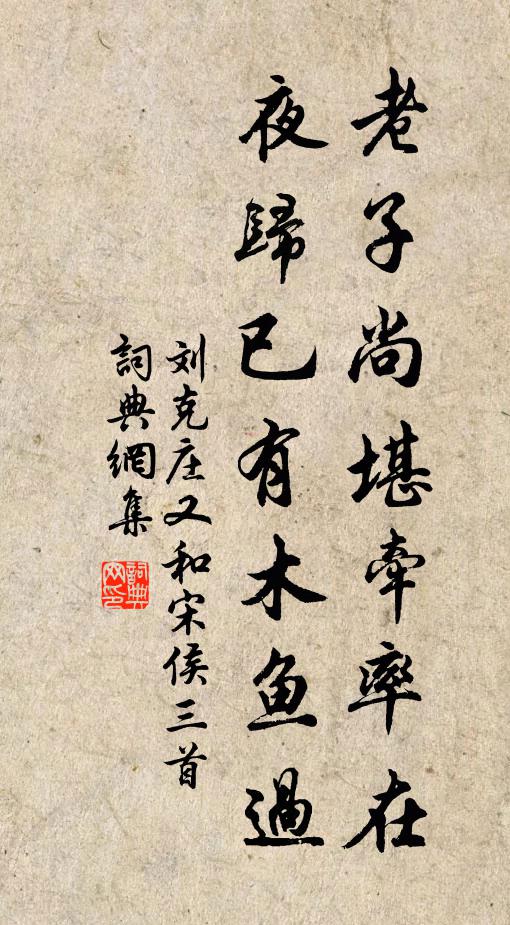 老子尚堪牵率在
夜歸已有木鱼過
刘克庄又和宋侯三首
詞典網集
詞典
网印